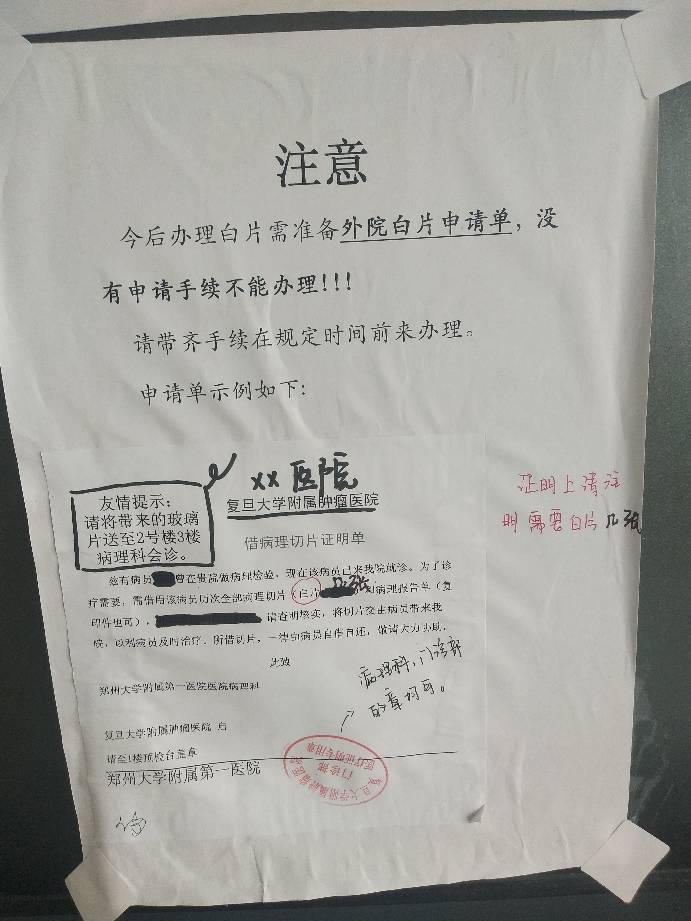 注意
今后办理白片需准备外院白片申请单，没
有申请手续不能办理!!!
请带齐手续在规定时间前来办理。
申请单示例如下:
XX医院
复旦大学附属肿瘤医院
友情提示：
请将带来的玻璃
片送至2号楼3楼
病理科会诊。
借病理切片证明单
证明上请注
明需要白片几张
兹有病员 曾在贵院做病理检验，现在该病员已来我院就诊。为了诊
疗需要，需借用该病员历次全部病理切片（白片 几张 和病理报告单（复
印件也可）， 请查明核实，将切片交由病员带来我
院，以利病员及时治疗。所借切片，一律由病员自借自还，敬请大力协助。
此致
病理科，门诊部
的章均可。
郑州大学附属第一医院医院病理科
复旦大学附属肿瘤医院 启
请至1楼预检台盖章
郑州大学附属第一医院
复旦大学附属肿瘤医院
门诊部
医疗证明专用章